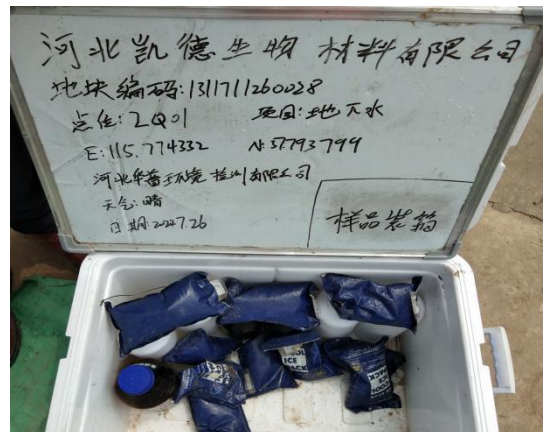 河北凯德生物材料有限公司
地块编码:1311711260028
点位:2Q01 项目:地下水
E:115.774332 N:37.793799
河北华普环境检测有限公司
天气:晴
日期:2022.7.26
样品装箱
ICE
PACK